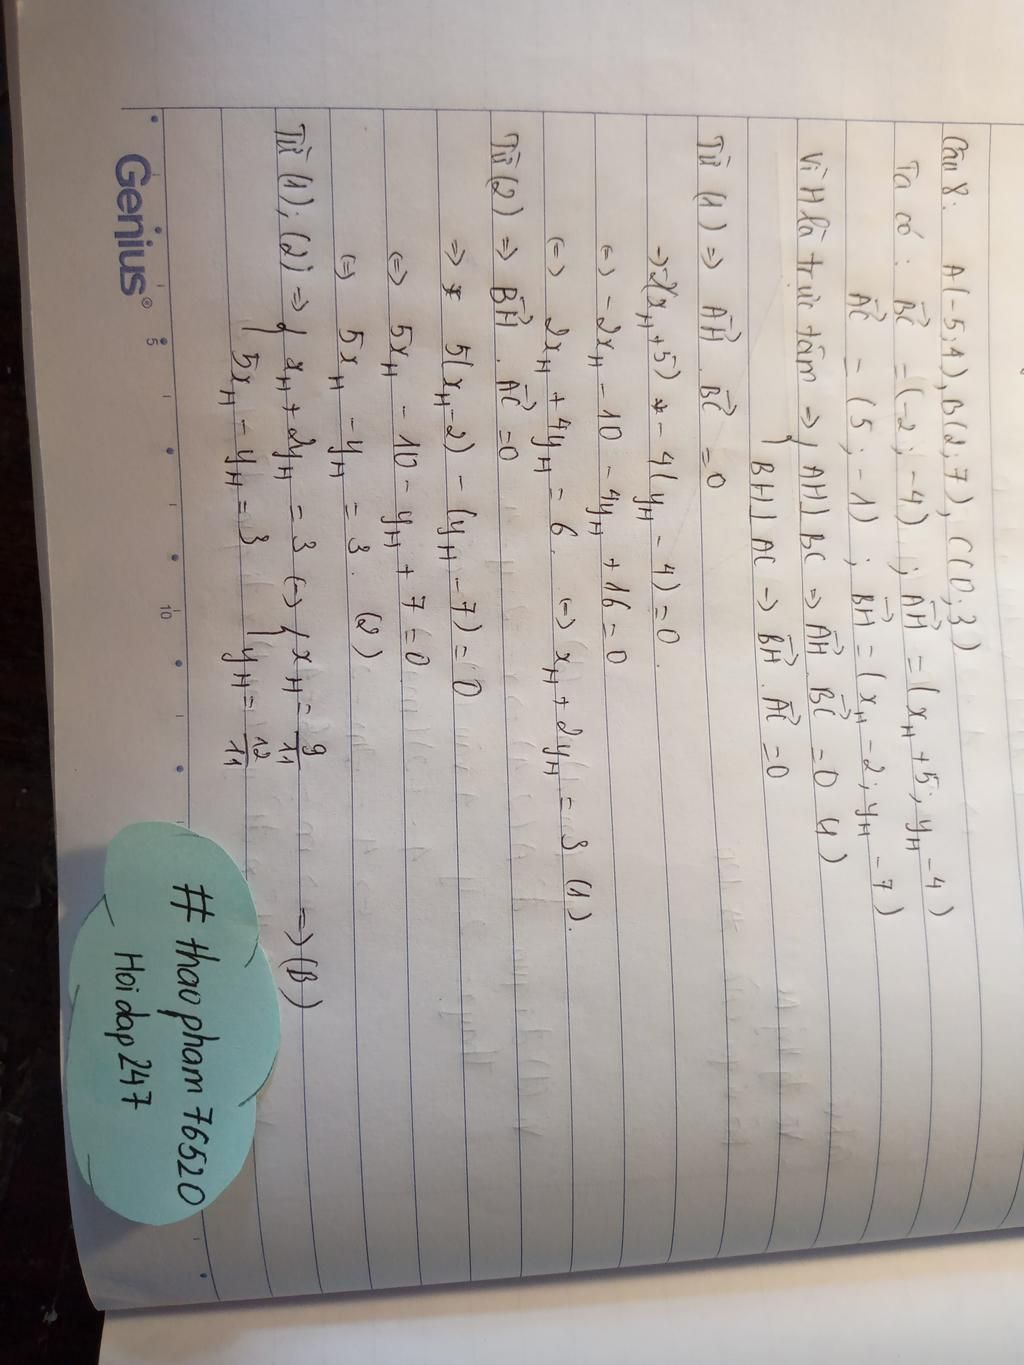 Câu 8: A(-5;4), B(2;7), C(0;3)
Ta có: BC→ = (-2; -4) ; AH→ = (x_H + 5; y_H - 4)
AC→ = (5; -1) ; BH→ = (x_H - 2; y_H - 7)
Vì H là trực tâm => { AH ⊥ BC => AH→ . BC→ = 0 (1)
BH ⊥ AC → BH→ . AC→ = 0
Từ (1) => AH→ . BC→ = 0
→ -2(x_H + 5) - 4(y_H - 4) = 0
(=) -2x_H - 10 - 4y_H + 16 = 0
(=) 2x_H + 4y_H = 6 (=) x_H + 2y_H = 3 (1).
Từ (2) => BH→ . AC→ = 0
=> 5(x_H - 2) - (y_H - 7) = 0
(=) 5x_H - 10 - y_H + 7 = 0
(=) 5x_H - y_H = 3. (2)
Từ (1); (2) => { x_H + 2y_H = 3 (=) { x_H = 9/11 => (B)
5x_H - y_H = 3 y_H = 12/11
Genius®
5
10
# thaopham76520
Hoidap247